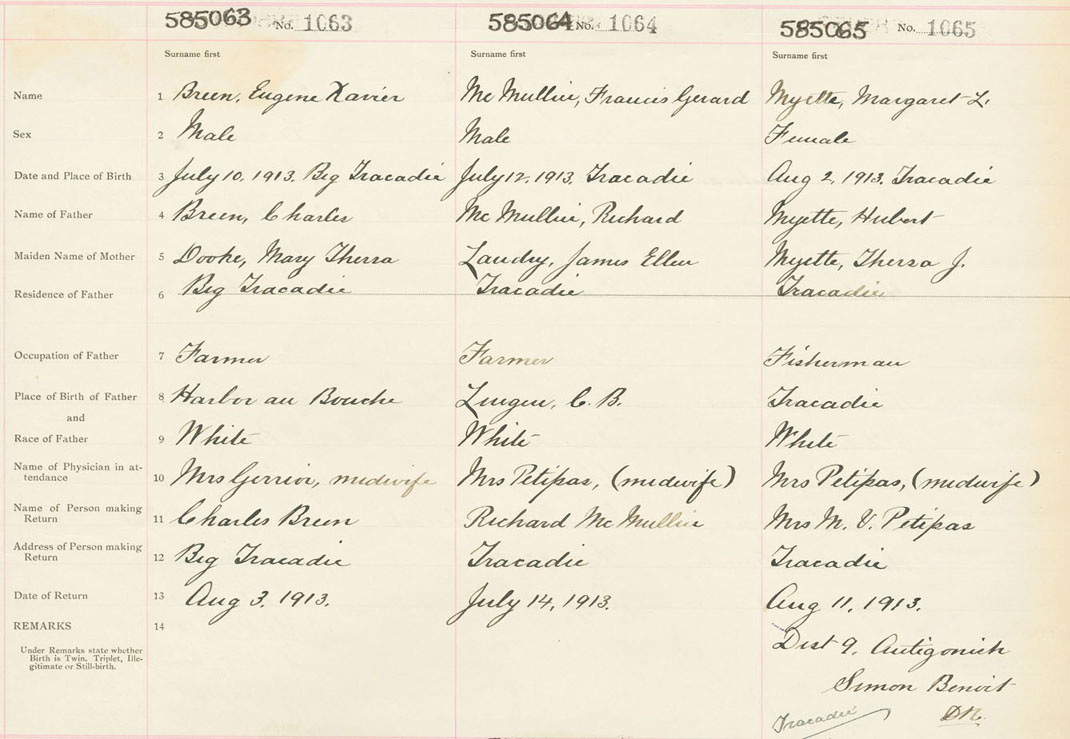 585063 No. 1063 585064 No. 1064 585065 No. 1065
Surname first Surname first Surname first
Name 1 Breen, Eugene Xavier Mc Mullin, Francis Gerard Myette, Margaret L.
Sex 2 Male Male Female
Date and Place of Birth 3 July 10, 1913. Big Tracadie July 12, 1913, Tracadie Aug 2, 1913. Tracadie
Name of Father 4 Breen, Charles Mc Mullin, Richard Myette, Hubert
Maiden Name of Mother 5 Mary Landry, James Ellen Myette, J.
Residence of Father 6 Big Tracadie Tracadie Tracadie
Occupation of Father 7 Farmer Farmer Fisherman
Place of Birth of Father 8 Harbor au Bouche C. B. Tracadie
and
Race of Father 9 White White White
Name of Physician in at-
tendance 10 Mrs midwife Mrs Petipas, (midwife) Mrs Petipas, (midwife)
Name of Person making
Return 11 Charles Breen Richard Mc Mullin Mrs M. V. Petipas
Address of Person making
Return 12 Big Tracadie Tracadie Tracadie
Date of Return 13 Aug 3. 1913. July 14, 1913. Aug 11, 1913.
REMARKS 14
Under Remarks state whether
Birth is Twin, Triplet, Ille-
gitimate or Still-birth.
Dist 9. Antigonish
Simon Benoit
Tracadie D.R.